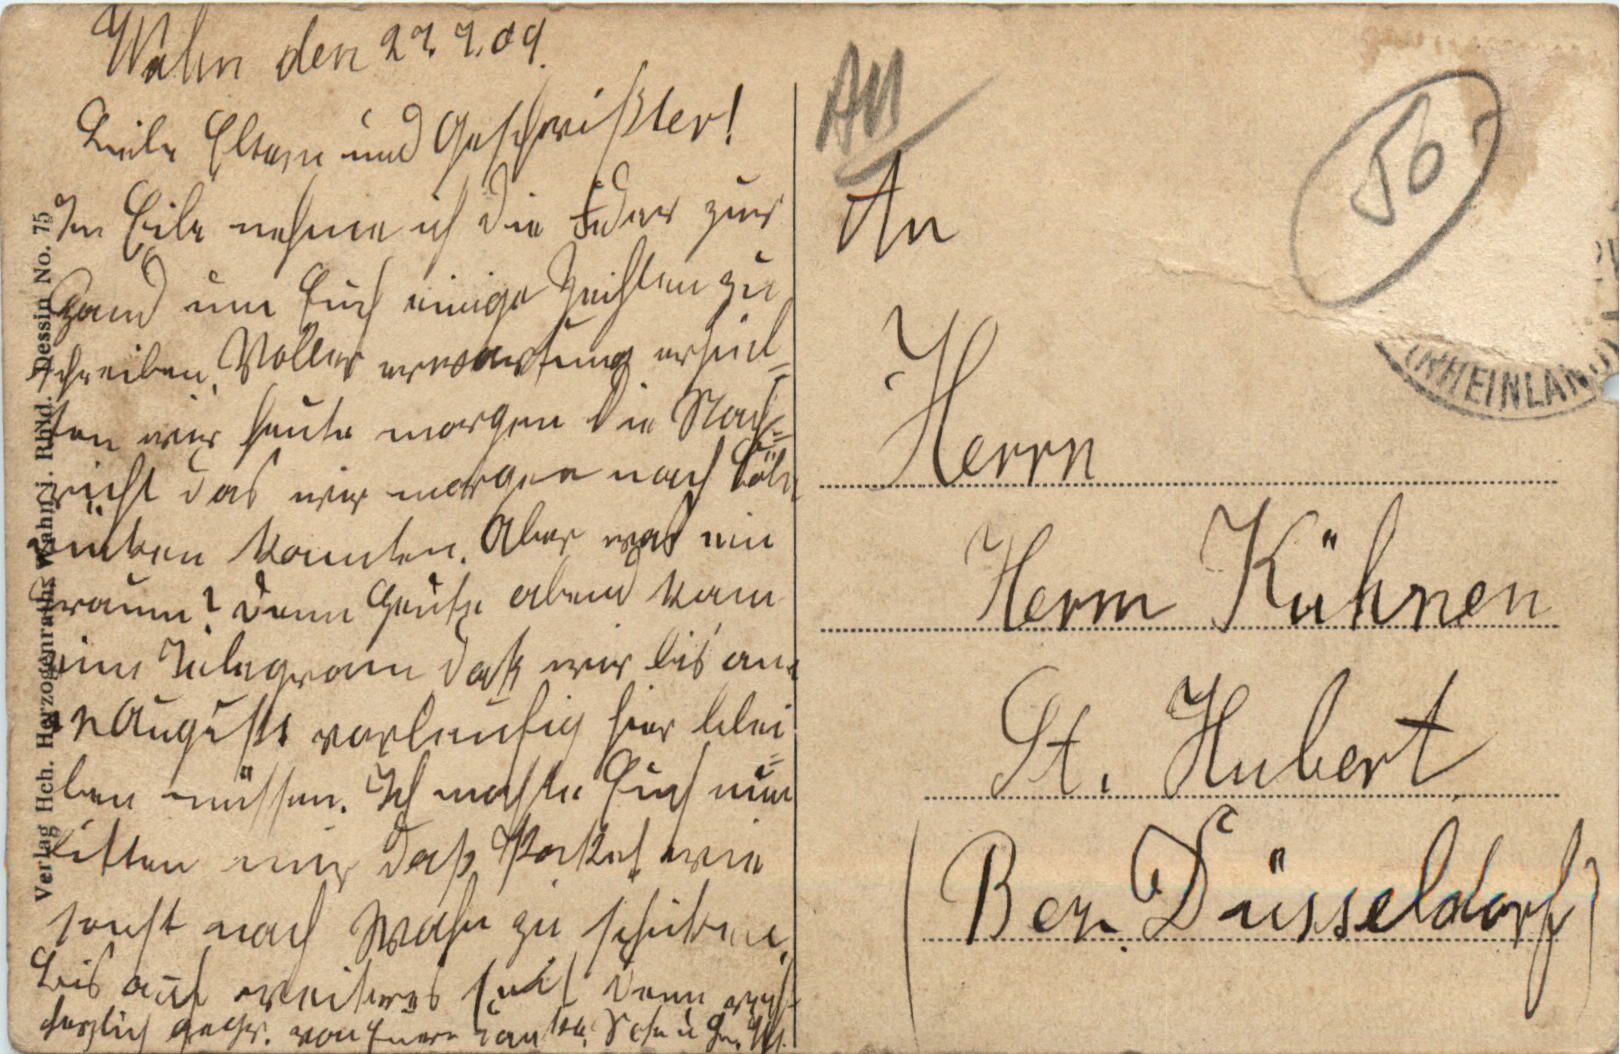 Wahn den 27.7.09.
Liebe Eltern und Geschwister!
In Eile nehme ich die Feder zur
Hand um Euch einige Zeichten zu
schreiben. Voller erwartung erhiel-
ten wir heute morgen die Nach-
richt das wir morgen nach Cöln
rücken konnten. Aber was ein
traum? Denn heute abend kam
ein Telegram daß wir bis am
August vorleufig hier blei-
ben müssen. Ich mochte Euch nun
bitten mir daß Packet wie
sonst nach Wahn zu schicken.
Bis auf weiteres seit denn
herzlich gegr. von Euern
Verlag Hch. Herzogenraths Wahn i. Rhld. Dessin No. 75
An
56
An
Herrn
Herm Kühnen
St. Hubert
(Bez. Düsseldorf)
(RHEINLAND)